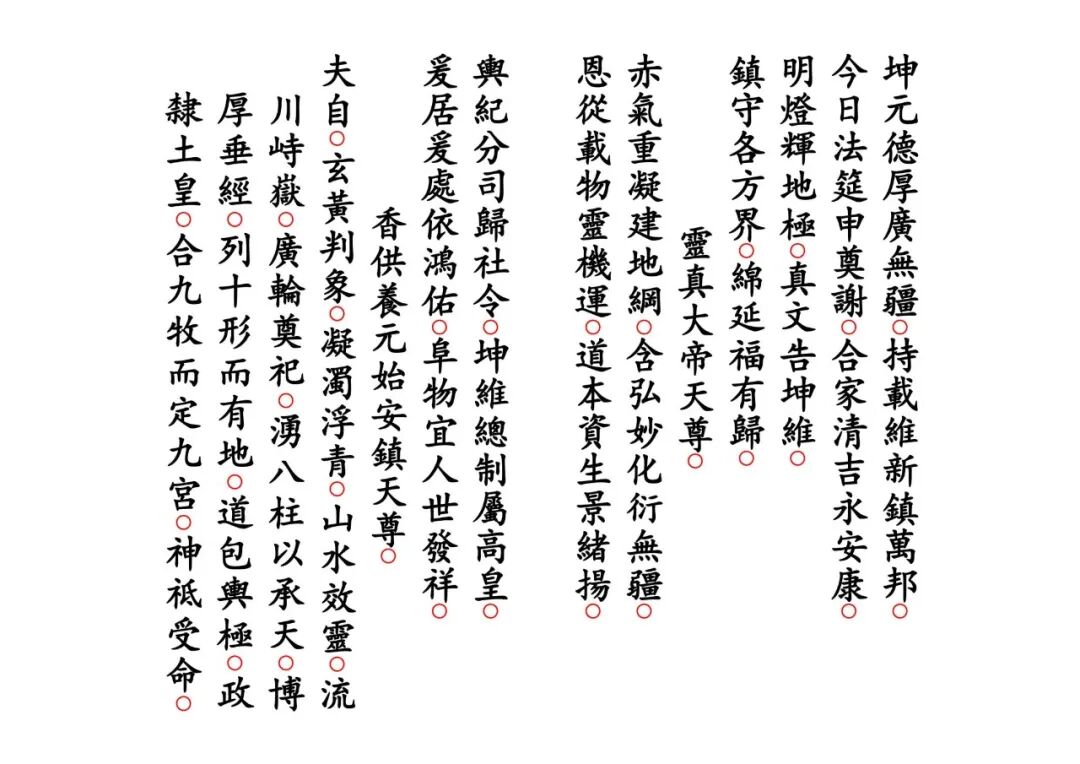 坤元德厚廣無疆○持載維新鎮萬邦○
今日法筵申奠謝○合家清吉永安康○
明燈輝地極○真文告坤維○
鎮守各方界○綿延福有歸○
靈真大帝天尊○
赤氣重凝建地綱○含弘妙化衍無疆○
恩從載物靈機運○道本資生景緒揚○
輿紀分司歸社令○坤維總制屬高皇○
爰居爰處依鴻佑○阜物宜人世發祥○
香供養元始安鎮天尊○
夫自○玄黃判象○凝濁浮青○山水效靈○流
川峙嶽○廣輪奠祀○湧八柱以承天○博
厚垂經○列十形而有地○道包輿極○政
隸土皇○合九牧而定九宮○神祇受命○